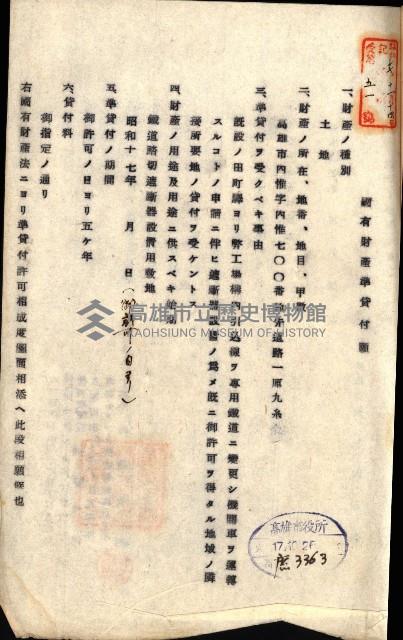 國有財產準貸付願
一、財產ノ種別
土地
二、財產ノ所在、地番、地目、甲數
高雄市內惟字內惟七〇〇番
道路一厘九糸
三、準貸付ヲ受クベキ事由
既設ノ田町驛ヨリ弊工場構內引込線ヲ專用鐵道ニ變更シ機關車ヲ運轉
スルコトノ申請ニ伴ヒ遮斷器設置ノ爲メ既ニ御許可ヲ得タル地域ノ隣
接所要地ノ貸付ヲ受ケントス
四、財產ノ用途及用途ニ供スベキ時期
鐵道踏切遮斷器設備用敷地
昭和十七年 月 日
五、準貸付ノ期間
御許可ノ日ヨリ五ケ年
六、貸付料
御指定ノ通リ
右國有財產法ニヨリ準貸付許可相成度圖面相添ヘ此段相願候也
高雄市役所
17.10.28
3363
高雄市立歷史博物館
KAOHSIUNG MUSEUM OF HISTORY